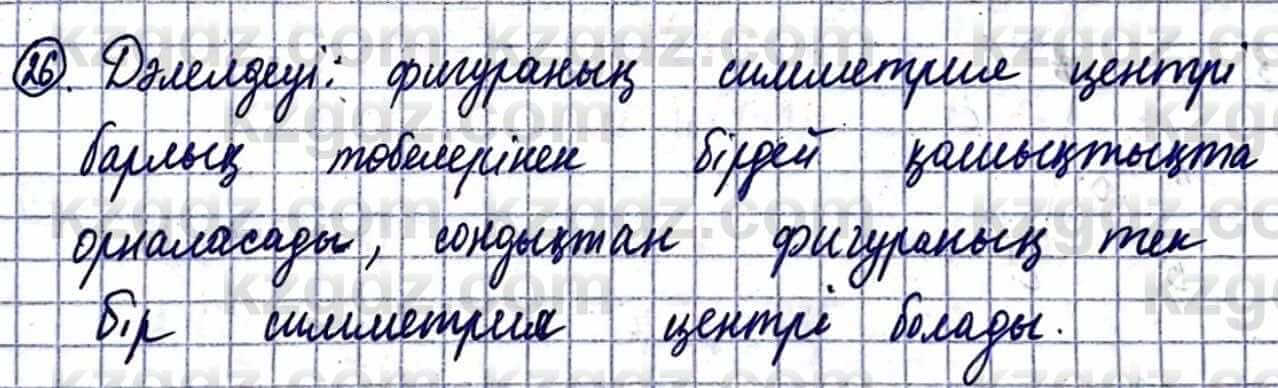 26. Дәлелдеуі: фигураның симметрия центрі
барлық төбелерінен бірдей қашықтықта
орналасады, сондықтан фигураның тек
бір симметрия центрі болады.